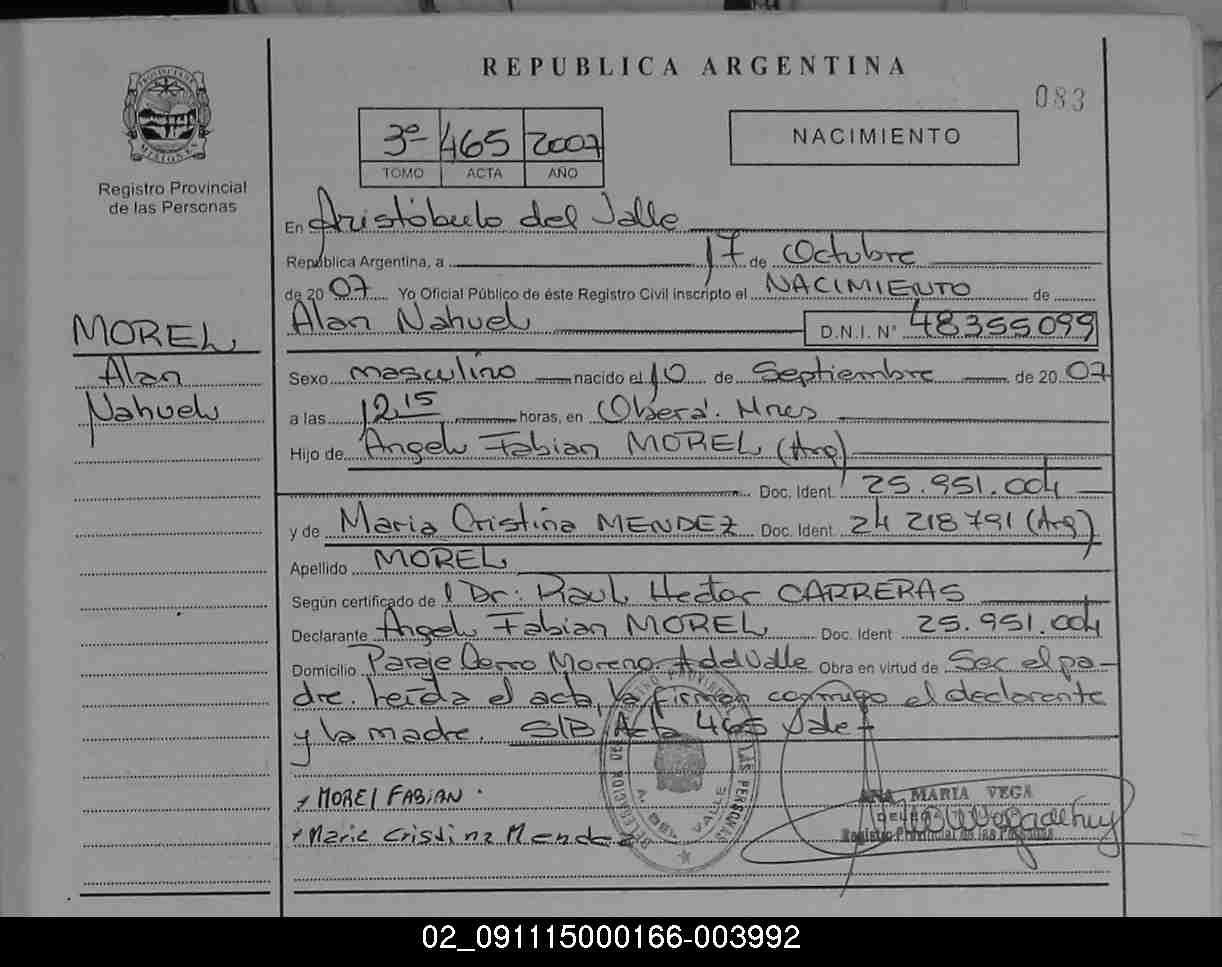 REPUBLICA ARGENTINA
083
PROVINCIA DE MISIONES
Registro Provincial
de las Personas
3º 465 2007
TOMO ACTA AÑO
NACIMIENTO
En Aristóbulo del Valle
República Argentina, a 17 de Octubre
de 20 07 Yo Oficial Público de éste Registro Civil inscripto el NACIMIENTO de
Alan Nahuel D.N.I. Nº 48355099
MOREL
Alan
Nahuel
Sexo masculino nacido el 10 de Septiembre de 20 07
a las 12 15 horas, en Oberá. Mnes
Hijo de Angel Fabian MOREL (Arg)
Doc. Ident. 25.951.004
y de Maria Cristina MENDEZ Doc. Ident. 24 218 791 (Arg)
Apellido MOREL
Según certificado de Dr: Raul Hector CARRERAS
Declarante Angel Fabian MOREL Doc. Ident 25.951.004
Domicilio Paraje Cerro Moreno. A del Valle Obra en virtud de Ser el pa-
dre. Leída el acta, la firman conmigo el declarante
y la madre. S/B Acta 465 Vale
MOREL FABIAN
Maria Cristina Mendez
A. DEL VALLE
ANA MARIA VEGA
Registro Provincial de las Personas
02_091115000166-003992